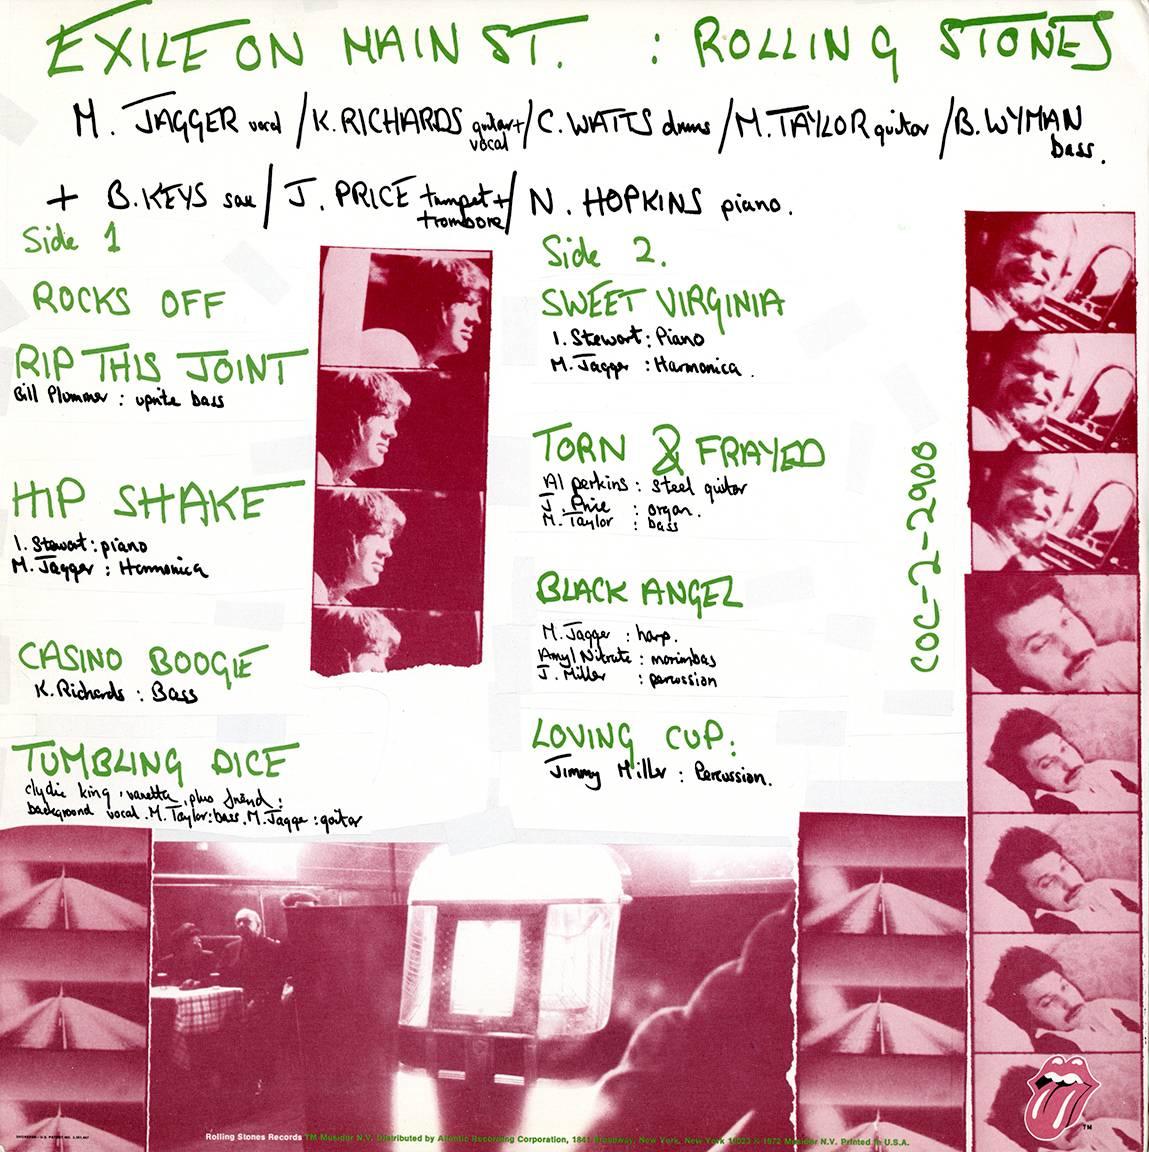 EXILE ON MAIN ST. : ROLLING STONES
M. JAGGER vocal / K. RICHARDS guitar + vocal / C. WATTS drums / M. TAYLOR guitar / B. WYMAN bass.
+ B. KEYS sax / J. PRICE trumpet + trombone / N. HOPKINS piano.
Side 1
ROCKS OFF
RIP THIS JOINT
Bill Plummer : uprite bass
HIP SHAKE
I. Stewart : piano
M. Jagger : Harmonica
CASINO BOOGIE
K. Richards : Bass
TUMBLING DICE
clydie king, vanetta, plus friend :
background vocal. M. Taylor : bass. M. Jagger : guitar
Side 2.
SWEET VIRGINIA
I. Stewart : Piano
M. Jagger : Harmonica.
TORN & FRAYED
Al perkins : steel guitar
J. Price : organ.
M. Taylor : bass
BLACK ANGEL
M. Jagger : harp.
Amyl Nitrate : marimbas
J. Miller : percussion
LOVING CUP :
Jimmy Miller : Percussion.
COC-2-2900
Rolling Stones Records TM Musidor N.V. Distributed by Atlantic Recording Corporation, 1841 Broadway, New York, New York 10023 © 1972 Musidor N.V. Printed in U.S.A.
TM